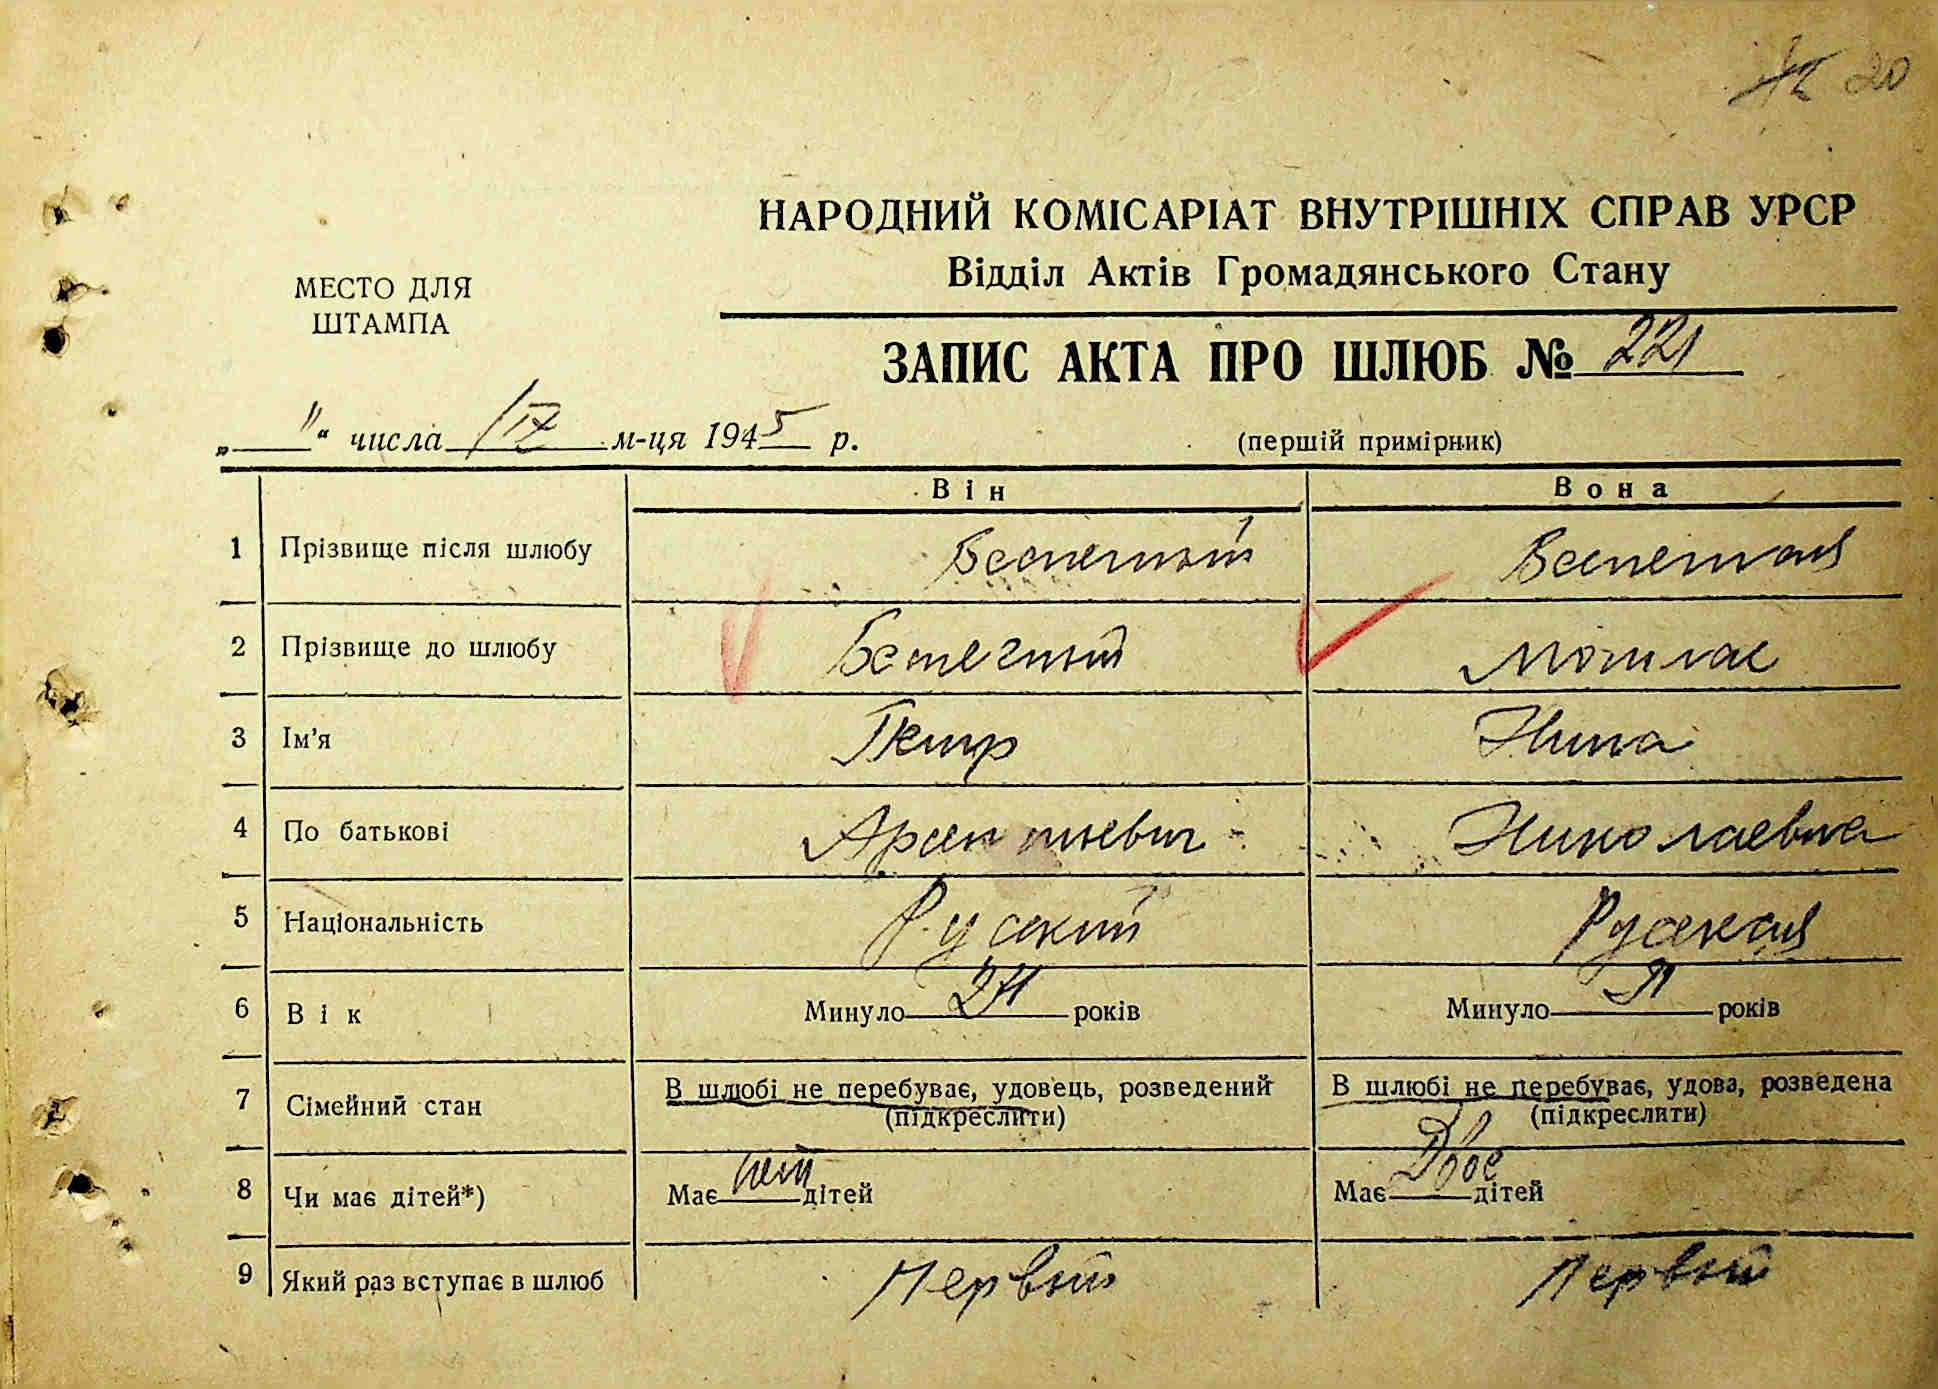 20
НАРОДНИЙ КОМІСАРІАТ ВНУТРІШНІХ СПРАВ УРСР
Відділ Актів Громадянського Стану
МЕСТО ДЛЯ
ШТАМПА
ЗАПИС АКТА ПРО ШЛЮБ № 221
„ " числа IX м-ця 1945 р.
(першій примірник)
Він Вона
1 Прізвище після шлюбу
2 Прізвище до шлюбу
3 Ім'я Петр Нина
4 По батькові Арсентьевич Николаевна
5 Національність Русский Русская
6 Вік Минуло років Минуло років
7 Сімейний стан В шлюбі не перебуває, удовець, розведений В шлюбі не перебуває, удова, розведена
(підкреслити) (підкреслити)
8 Чи має дітей*) Має нет дітей Має Двое дітей
9 Який раз вступає в шлюб Первый Первый